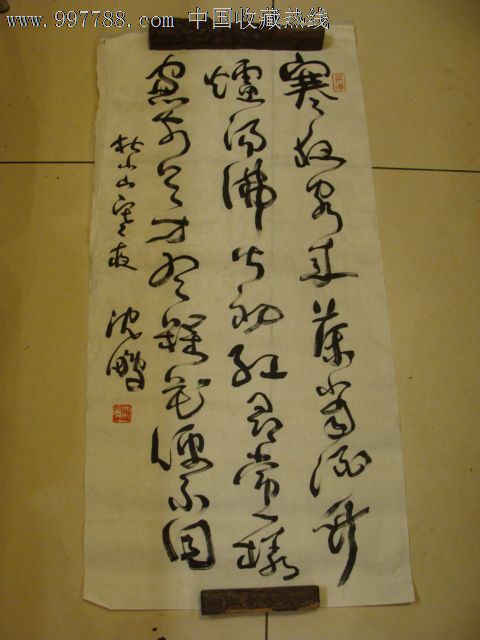 www.997788.com 中国收藏热线
寒夜客来茶當酒竹
爐湯沸火初紅尋常一樣
窗前月才有梅花便不同
杜小山寒夜 沈鵬